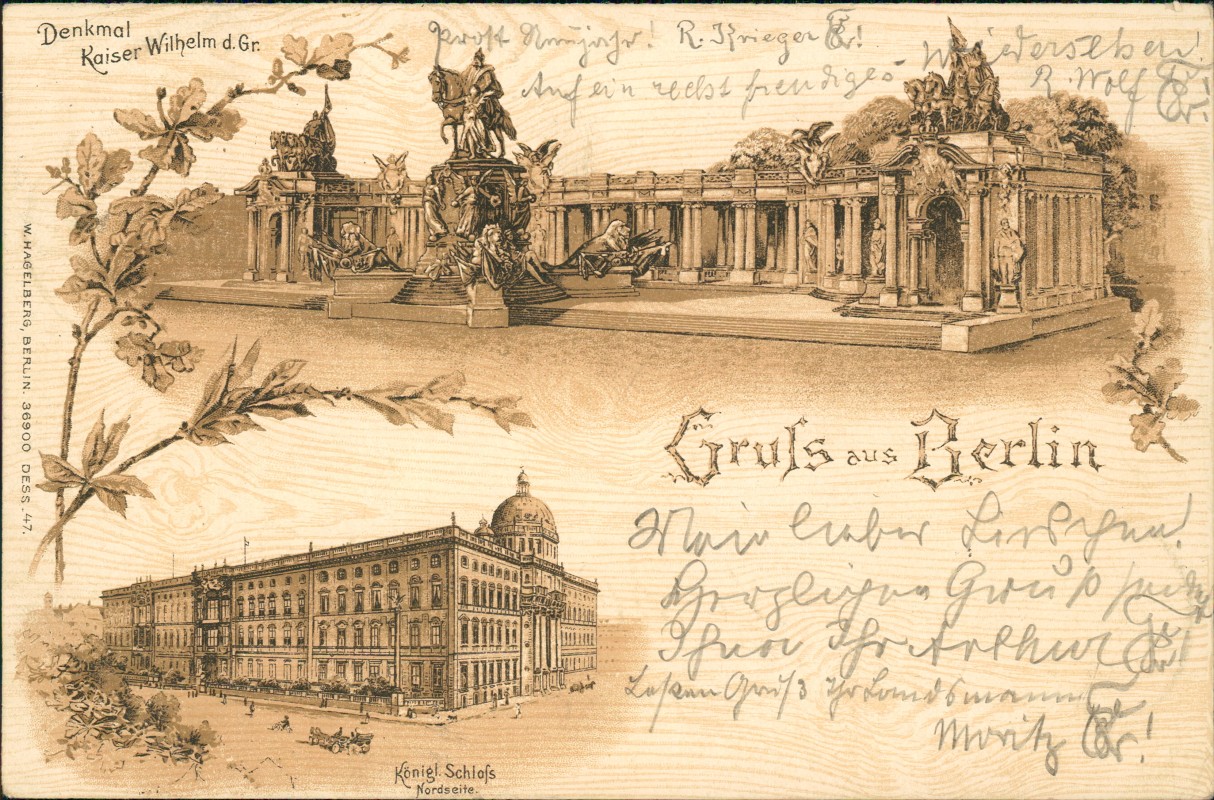 Denkmal
Kaiser Wilhelm d. Gr.
Prost Neujahr! R. Krieger
Auf ein recht freudiges Wiedersehen!
R. Wolf
W. HAGELBERG, BERLIN. 36900 DESS. 47.
Gruſs aus Berlin
Mein lieber
Herzlichen Gruß sendet
Ihnen Ihr Arthur
Gruß Ihr Landsmann
Moritz
Königl. Schloſs
Nordseite.